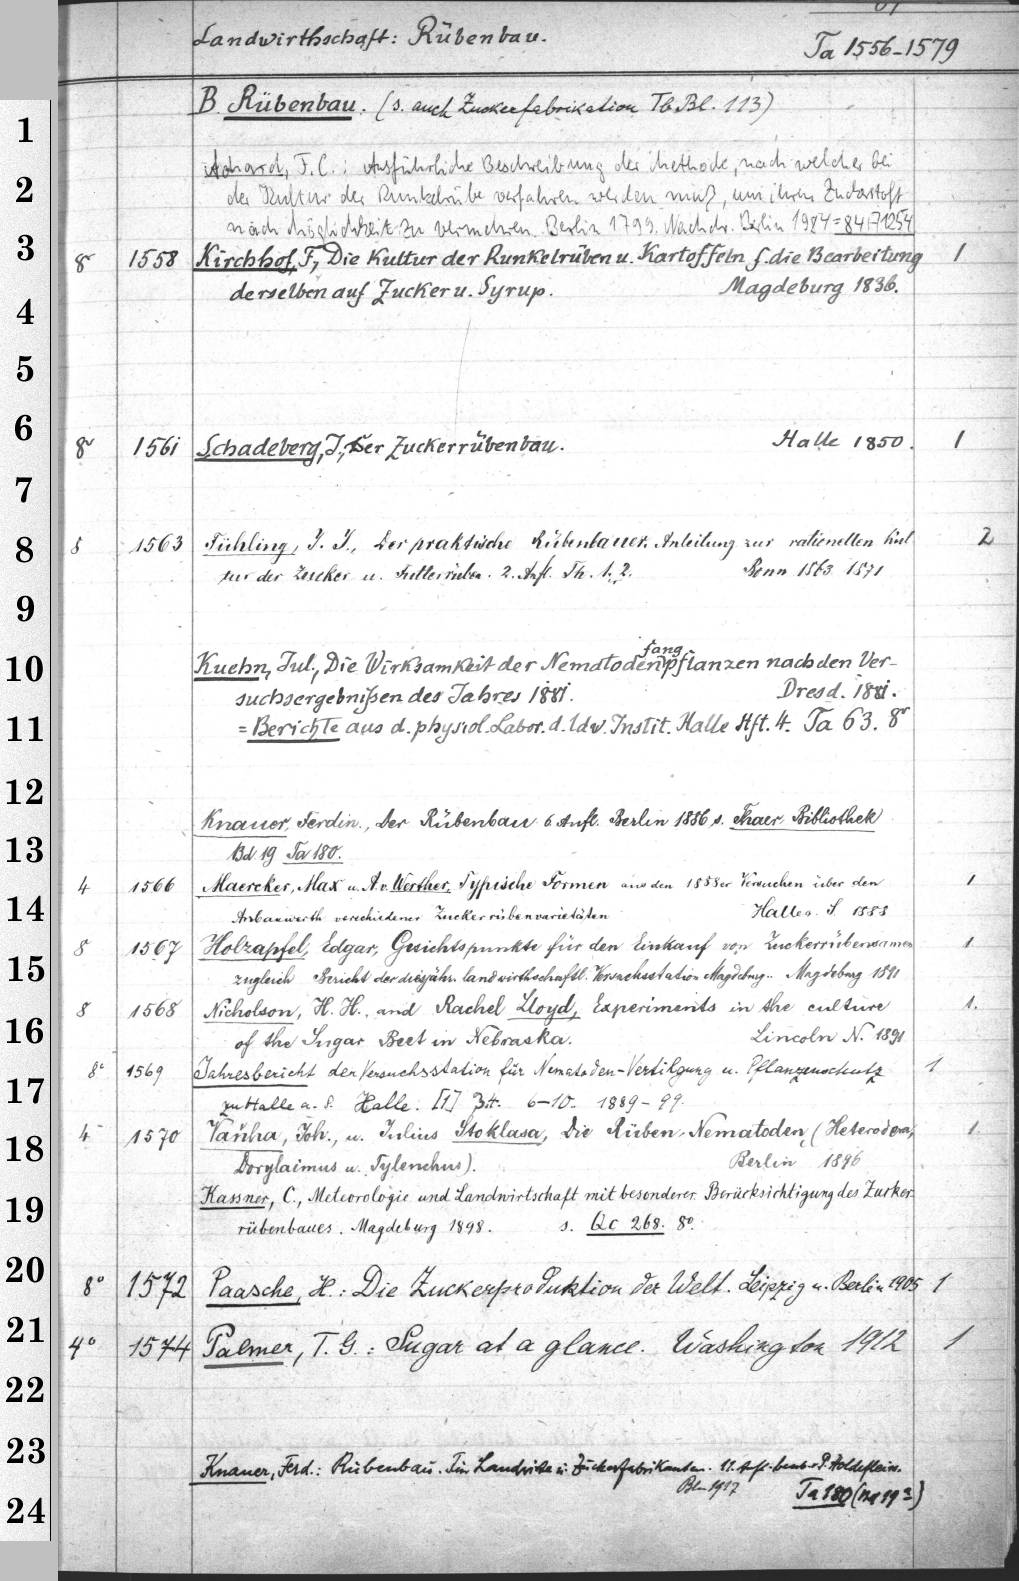 Landwirthschaft: Rübenbau.
Ta 1556-1579
B. Rübenbau. (s. auch Zuckerfabrikation Tb Bl. 113)
Achard, F. C.: Ausführliche Beschreibung der Methode, nach welcher bei
der Kultur der Runkelrübe verfahren werden muß, um ihren Zuckerstoff
nach Möglichkeit zu vermehren. Berlin 1799. Nachdr. Berlin 1984 = 84 A 1254
8° 1558 Kirchhof, F., Die Kultur der Runkelrüben u. Kartoffeln f. die Bearbeitung 1
derselben auf Zucker u. Syrup. Magdeburg 1836.
8° 1561 Schadeberg, J., Der Zuckerrübenbau. Halle 1850. 1
8 1563 Fühling, J. J., Der praktische Rübenbauer. Anleitung zur rationellen Kul 2
tur der Zucker u. Futterrüben. 2. Aufl. Th. 1. 2. Bonn 1863 1871
Kuehn, Jul., Die Wirksamkeit der Nematodenfangpflanzen nach den Ver-
suchsergebnißen des Jahres 1881. Dresd. 1881.
= Berichte aus d. physiol. Labor. d. ldw. Instit. Halle Hft. 4. Ta 63. 8°
Knauer, Ferdin., Der Rübenbau 6 Aufl. Berlin 1886 s. Thaer Bibliothek
Bd 19 Ta 180.
4 1566 Maercker, Max u. A. v. Werther, Typische Formen aus den 1888er Versuchen über den 1
Anbauwerth verschiedener Zuckerrübenvarietäten Halle a. S. 1888
8 1567 Holzapfel, Edgar, Gesichtspunkte für den Einkauf von Zuckerrübensamen 1
zugleich Bericht der diesjähr. landwirthschaftl. Versuchsstation Magdeburg. Magdeburg 1891
8 1568 Nicholson, H. H., and Rachel Lloyd, Experiments in the culture 1.
of the Sugar Beet in Nebraska. Lincoln N. 1891
8° 1569 Jahresbericht der Versuchsstation für Nematoden-Vertilgung u. Pflanzenschutz 1
zu Halle a. S. Halle. [1] 4. 6-10. 1889-99.
4 1570 Vaňha, Joh., u. Julius Stoklasa, Die Rüben-Nematoden, (Heterodera, 1
Dorylaimus u. Tylenchus). Berlin 1896
Kassner, C., Meteorologie und Landwirtschaft mit besonderer Berücksichtigung des Zucker-
rübenbaues. Magdeburg 1898. s. Qc 268. 8°.
8° 1572 Paasche, H.: Die Zuckerproduktion der Welt. Leipzig u. Berlin 1905 1
4° 1574 Palmer, T. G.: Sugar at a glance. Washington 1912 1
Knauer, Ferd.: Rübenbau. Für Landwirte u. Zuckerfabrikanten. 11. Aufl. bearb. v. P. Holdefleiss.
Bln 1917
Ta 180 (Bd 19 a)
1
2
3
4
5
6
7
8
9
10
11
12
13
14
15
16
17
18
19
20
21
22
23
24